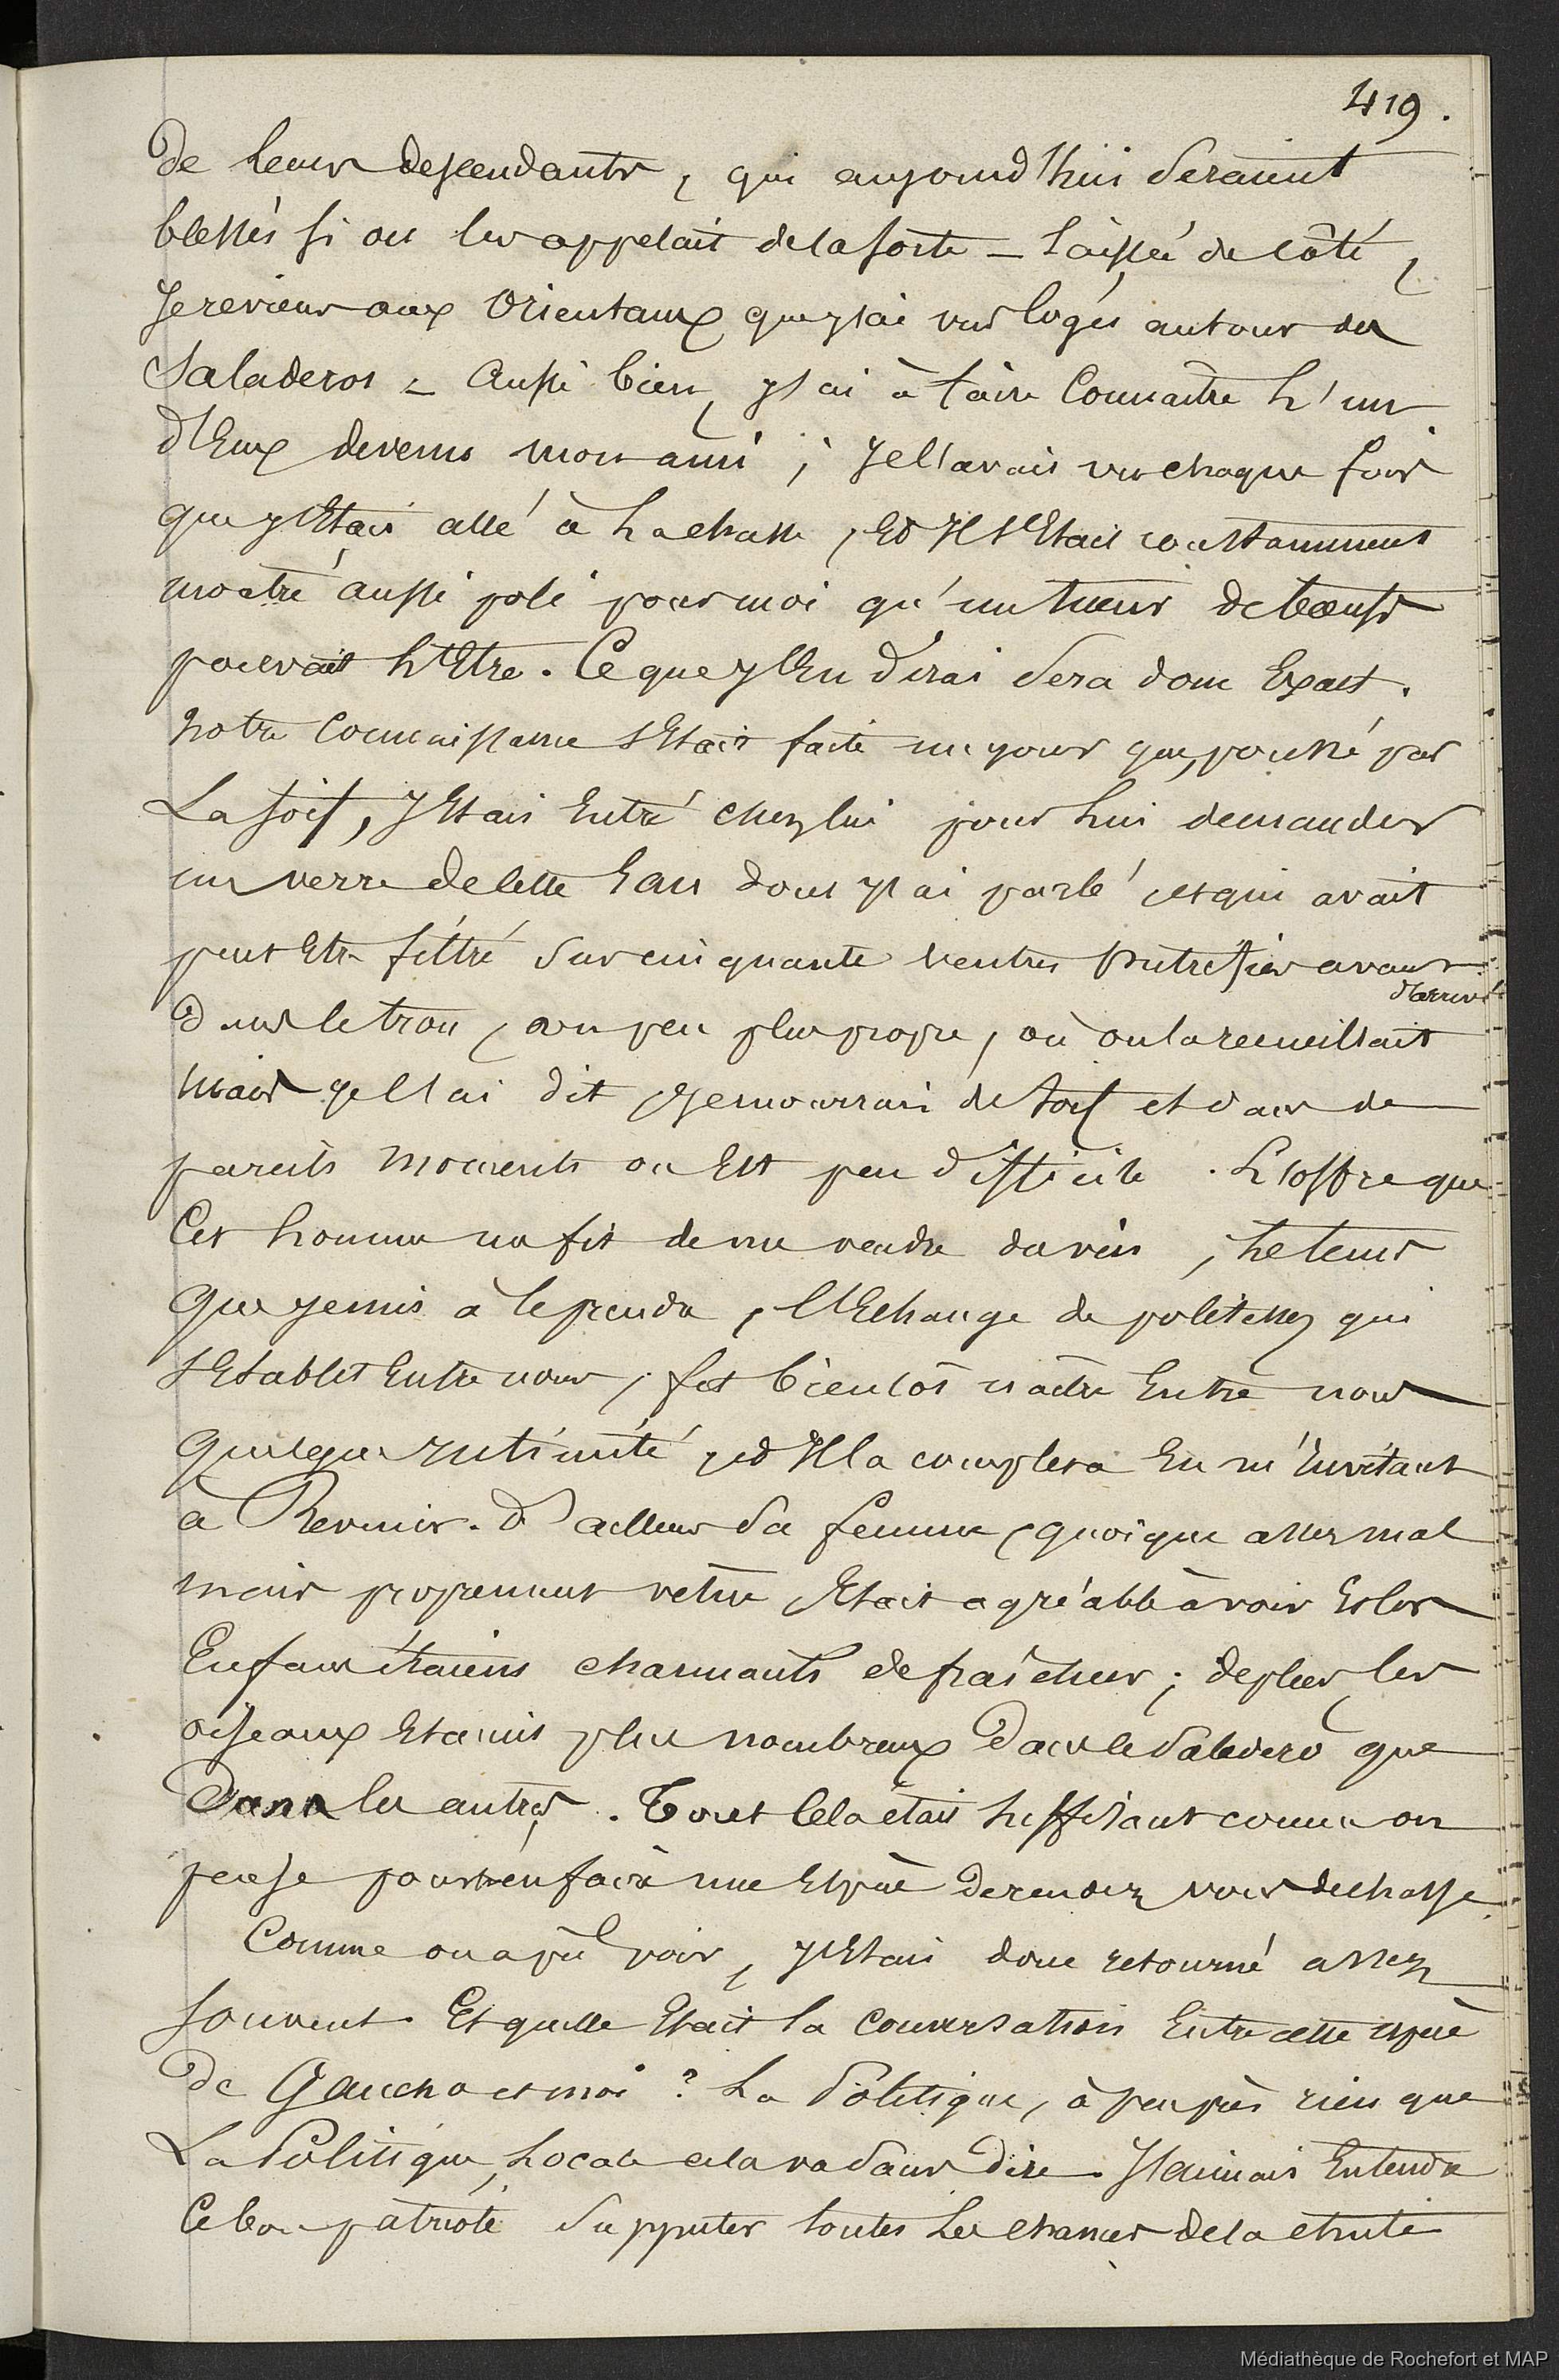 419.
de leurs descendants, qui aujourd'hui seraient
blessés si on les appelait de la sorte – laissée de côté,
Je reviens aux Orientaux que j'ai vus logés autour des
Saladeros – Aussi bien, j'ai à faire Connaître l'un
d'Eux devenu mon ami ; Je l'avais vu chaque fois
que j'Etais allé à la chasse, Et Il s'Etait constamment
montré aussi poli pour moi qu'un tueur de boeufs
pouvait l'Etre. Ce que j'En dirai sera donc Exact.
Notre Connaissance s'Etait faite un jour que, poussé par
La soif, J'Etais Entré chez lui pour lui demander
un verre de cette Eau dont j'ai parlé et qui avait
peut Etre filtré sur cinquante ventres putréfiés avant
d'arriver
dans le trou, un peu plus propre, où on la recueillait
Mais je l'ai dit je mourrais de soif et dans de
pareils moments on Est peu difficile. L'offre que
Cet homme me fit de me vendre du vin, le temps
Que je mis à le prendre, l'Echange de politesses qui
s'Etablit Entre nous, fit bientôt naître Entre nous
Quelque Intimité, et Il la compléta En m'Invitant
à Revenir. D'ailleurs Sa femme, quoique assez mal
mais proprement vêtue Etait agréable à voir Et les
Enfans étaient charmants de fraîcheur ; de plus, les
oiseaux Etaient plus nombreux dans le Saladero que
Dans les autres. Tout Cela était suffisant comme on
pense pour en faire une Espèce de rendez vous de chasse.
Comme on a pu voir, j'Etais donc retourné assez
souvent. Et quelle Etait la Conversation Entre cette espèce
de Gaucho et moi ? La Politique, à peu près rien que
La Politique, Locale cela va sans dire. J'aimais Entendre
Ce bon patriote supputer toutes Les chances de la chute